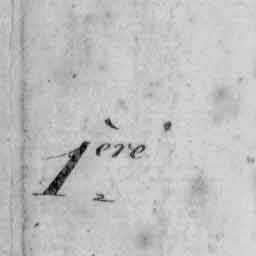 1ère
2